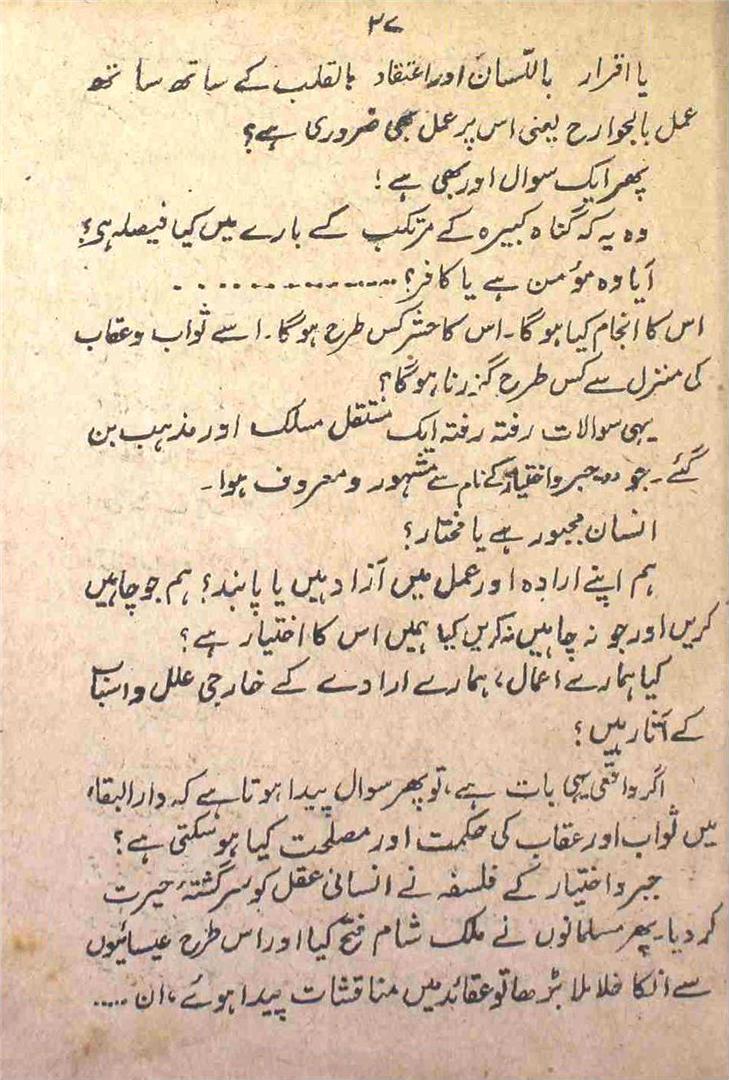 ۳۷
یا اقرار باللّسان اور اعتقاد بالقلب کے ساتھ ساتھ
عمل بالجوارح یعنی اس پر عمل بھی ضروری ہے؟
پھر ایک سوال اور بھی ہے!
وہ یہ کہ گناہ کبیرہ کے مرتکب کے بارے میں کیا فیصلہ ہی؟
آیا وہ مؤمن ہے یا کافر؟ ...............
اس کا انجام کیا ہوگا۔ اس کا حشر کس طرح ہوگا۔ اسے ثواب و عقاب
کی منزل سے کس طرح گزرنا ہوگا؟
یہی سوالات رفتہ رفتہ ایک مستقل مسلک اور مذہب بن
گئے۔ جو ”جبر و اختیار“ کے نام سے مشہور و معروف ہوا۔
انسان مجبور ہے یا مختار؟
ہم اپنے ارادہ اور عمل میں آزاد ہیں یا پابند؟ ہم جو چاہیں
کریں اور جو نہ چاہیں نہ کریں کیا ہمیں اس کا اختیار ہے؟
کیا ہمارے اعمال، ہمارے ارادے کے خارجی علل و اسباب
کے آثار ہیں؟
اگر واقعی یہی بات ہے، تو پھر سوال پیدا ہوتا ہے کہ دارالبقاء
میں ثواب اور عقاب کی حکمت اور مصلحت کیا ہو سکتی ہے؟
جبر و اختیار کے فلسفہ نے انسانی عقل کو سرگشتۂ حیرت
کر دیا۔ پھر مسلمانوں نے ملک شام فتح کیا اور اس طرح عیسائیوں
سے انکا خلا ملا بڑھا تو عقائد میں مناقشات پیدا ہوئے، ان .....